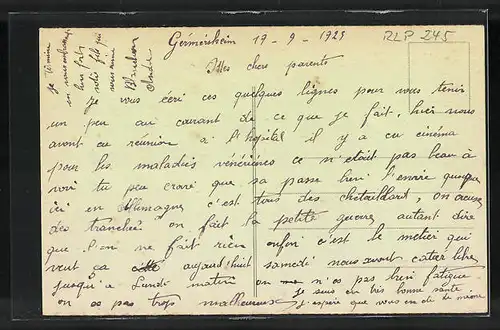 Germersheim 17-9-1925
RLP 245
Mes chers parents
Je vous écri ces quelques lignes pour vous tenir
un peu au courant de ce que je fait, hier nous
avont eu réunion a l'hopital il y a eu cinéma
pour les maladies vénériènes ce n'etait pas beau à
voir tu peu croire que sa passe bien l'envie
ici en Allemagne c'est tous des on
des tranchée on fait la petite guerre autant dire
que l'on ne fait rien enfin c'est le metier qui
veut ca aujourd'huit samedi nous avont cartier libre
jusqu'a Lundi matin on n'es pas bien fatigue
on es pas trop malheureux je suis en très bonne santé
j'espère que vous en de meme
Je termine
en vous embrassant
bien fort
votre fils qui
vous aime